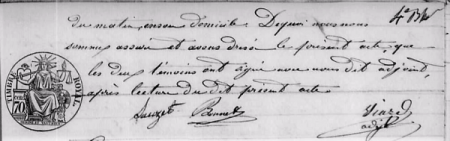 du matin, en son domicile. De quoi nous nous
sommes assuré et avons dressé le présent acte, que
les dits témoins ont signé avec nous dit adjoint,
après lecture du dit présent acte.
Bonnet
adjt
TIMBRE ROYAL
70